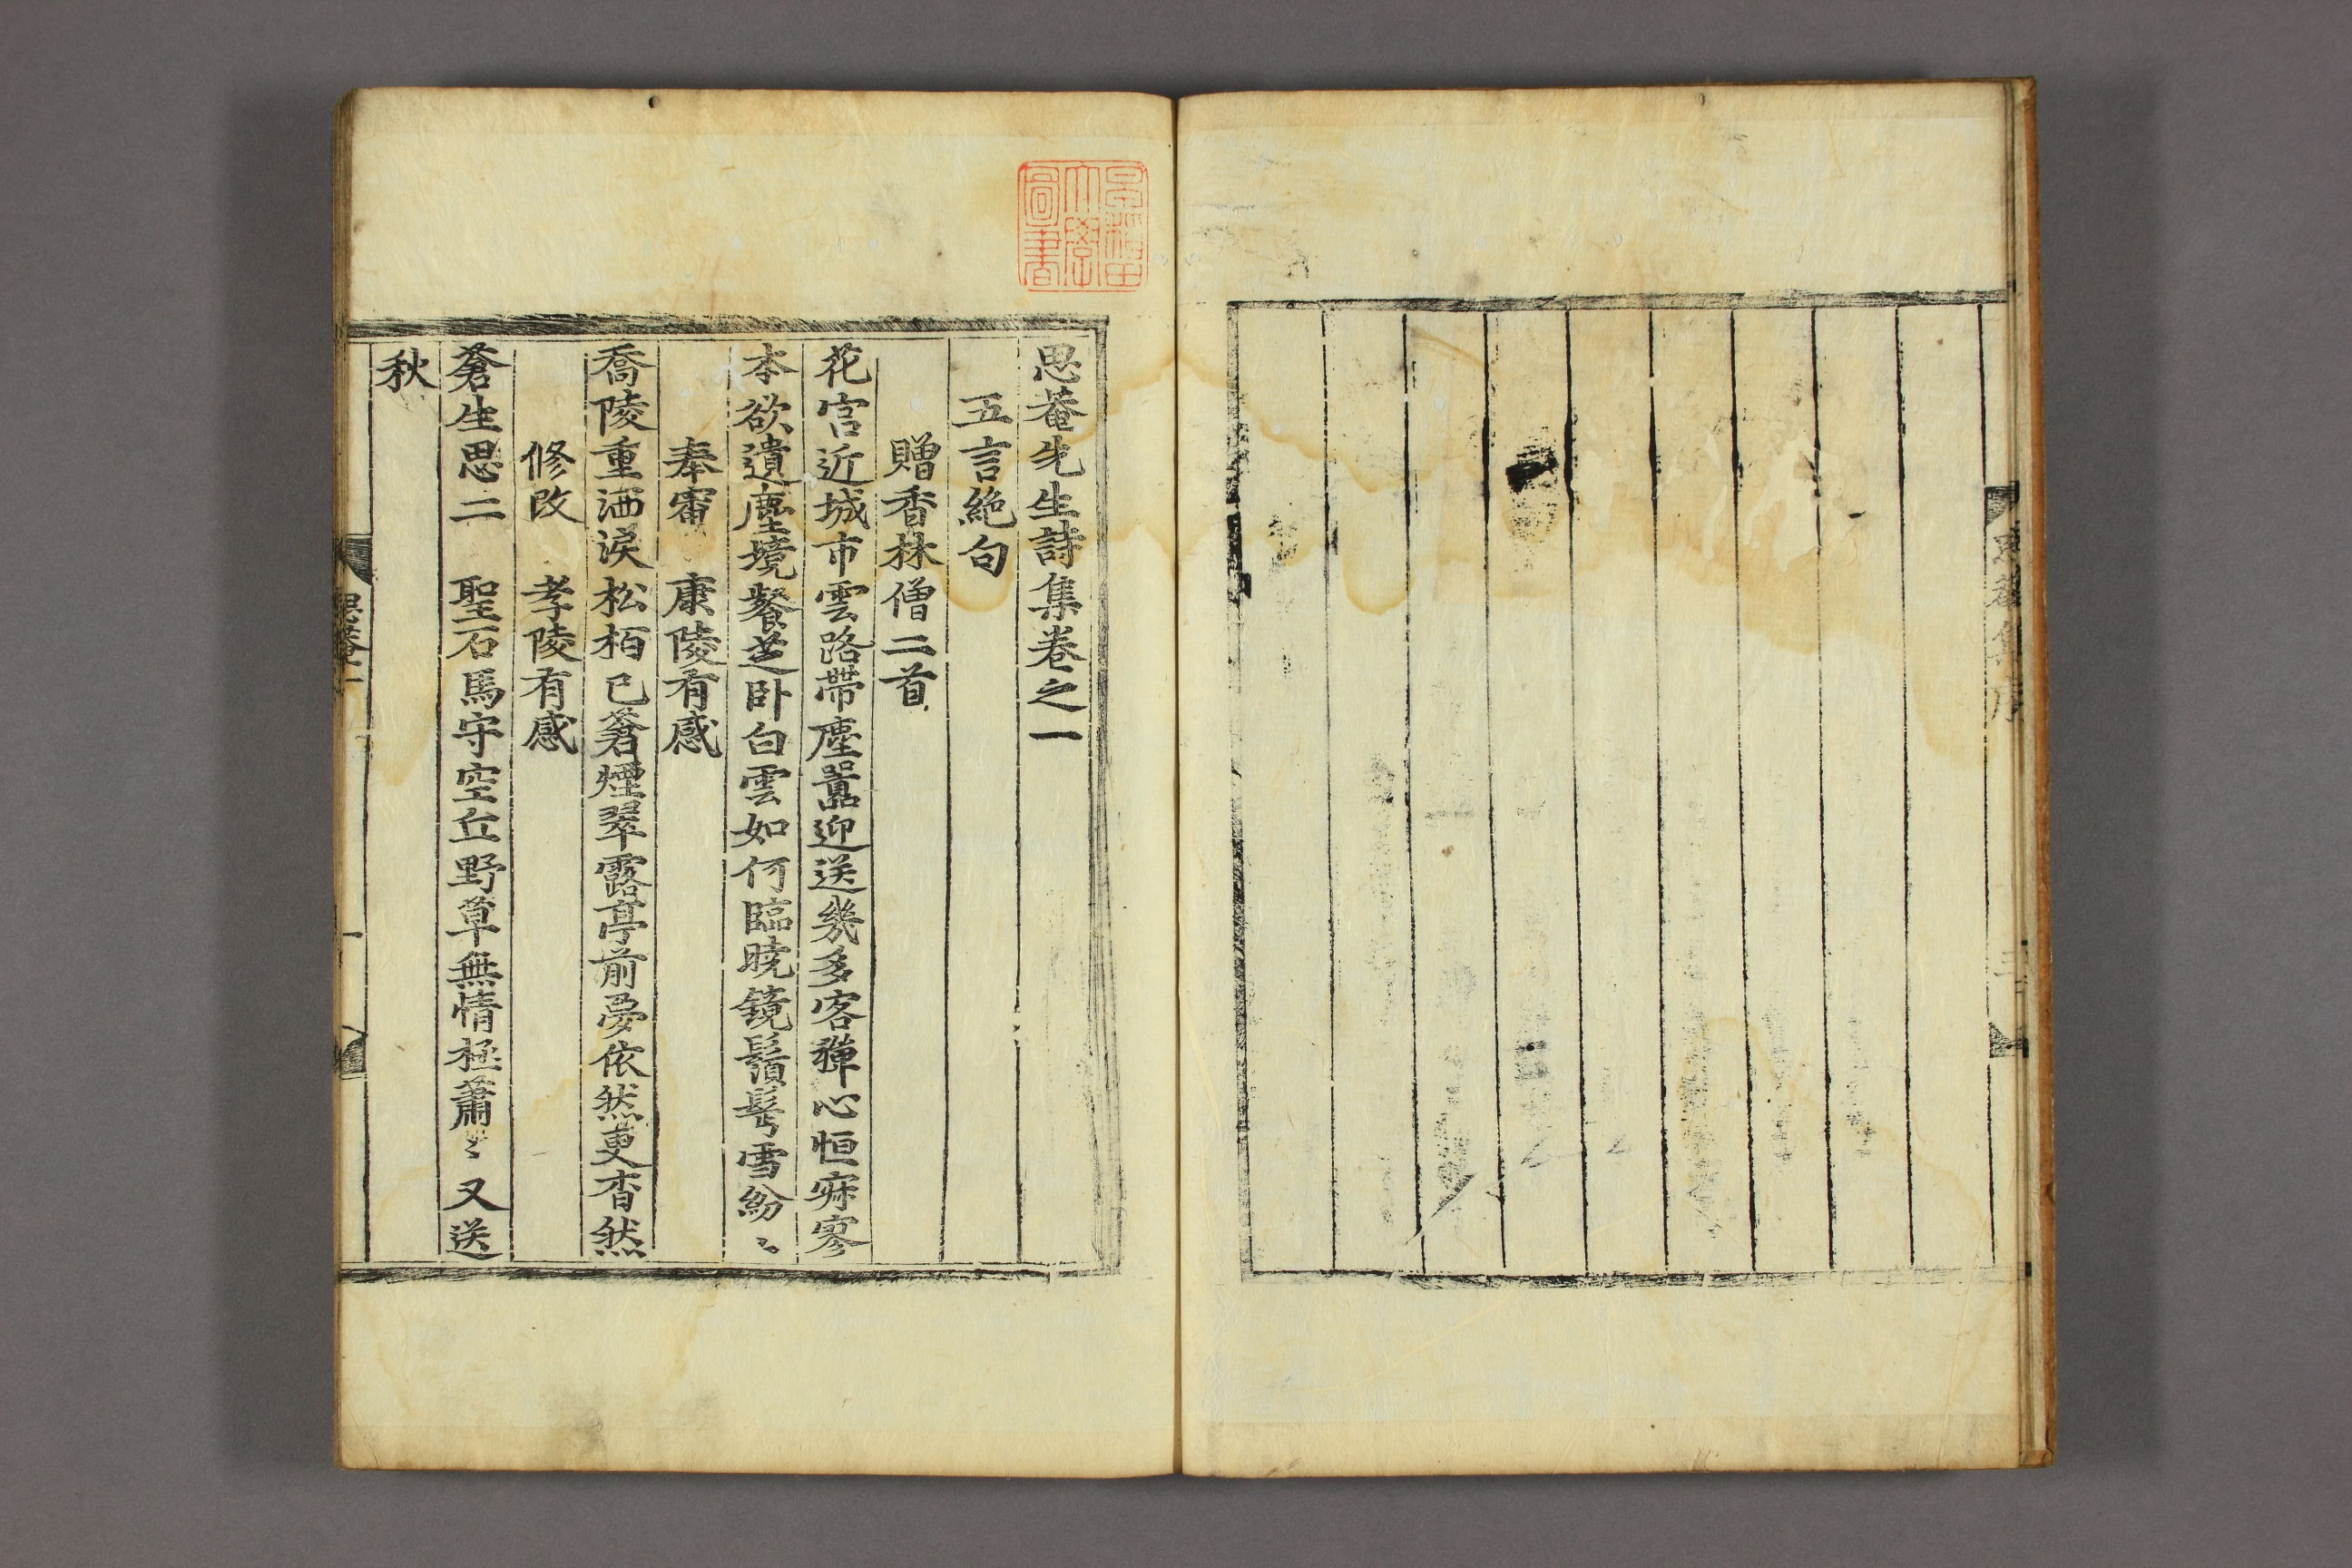 思菴集序
三
早稲田
大學
圖書
思菴先生詩集卷之一
五言絶句
贈香林僧二首
花宮近城市雲路帶塵囂迎送幾多客禪心恒寂寥
本欲遺塵境餐芝卧白雲如何臨曉鏡鬚髩雪紛〻
奉審 康陵有感
喬陵重洒淚松栢已蒼煙翠露亭前夢依然更杳然
修改 孝陵有感
蒼生思二 聖石馬守空丘野草無情極蕭〻又送
秋
思菴一
一